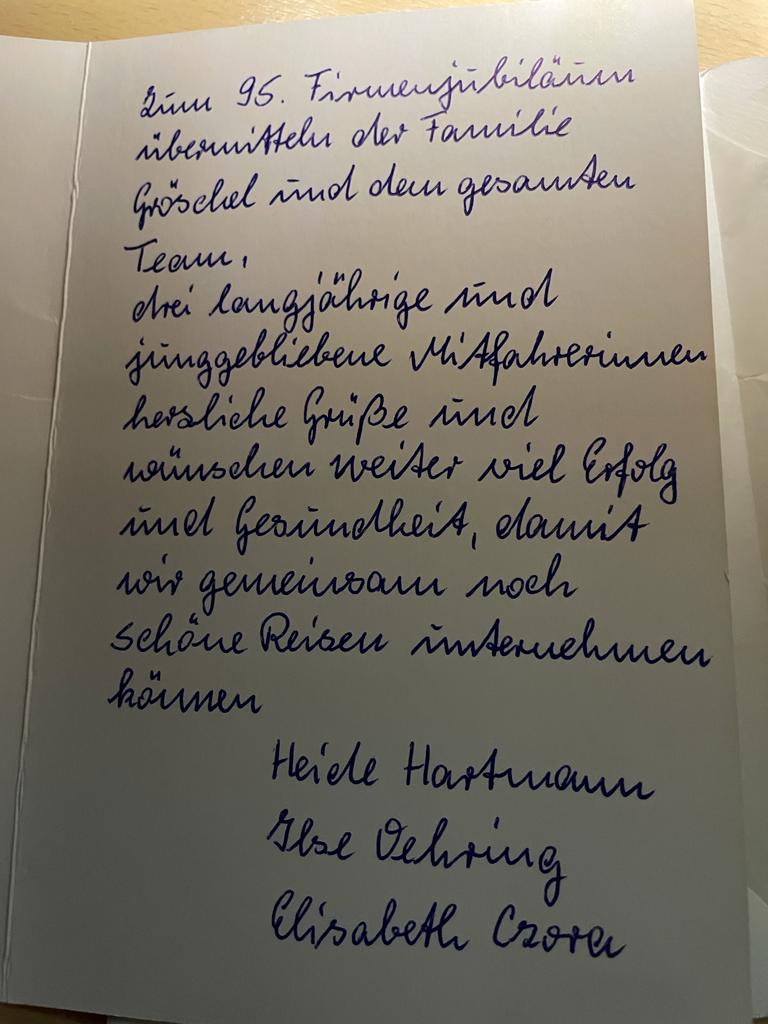 Zum 95. Firmenjubiläum
übermitteln der Familie
Gröschel und dem gesamten
Team,
drei langjährige und
junggebliebene Mitfahrerinnen
herzliche Grüße und
wünschen weiter viel Erfolg
und Gesundheit, damit
wir gemeinsam noch
schöne Reisen unternehmen
können
Heide Hartmann
Ilse Oehring
Elisabeth Czora